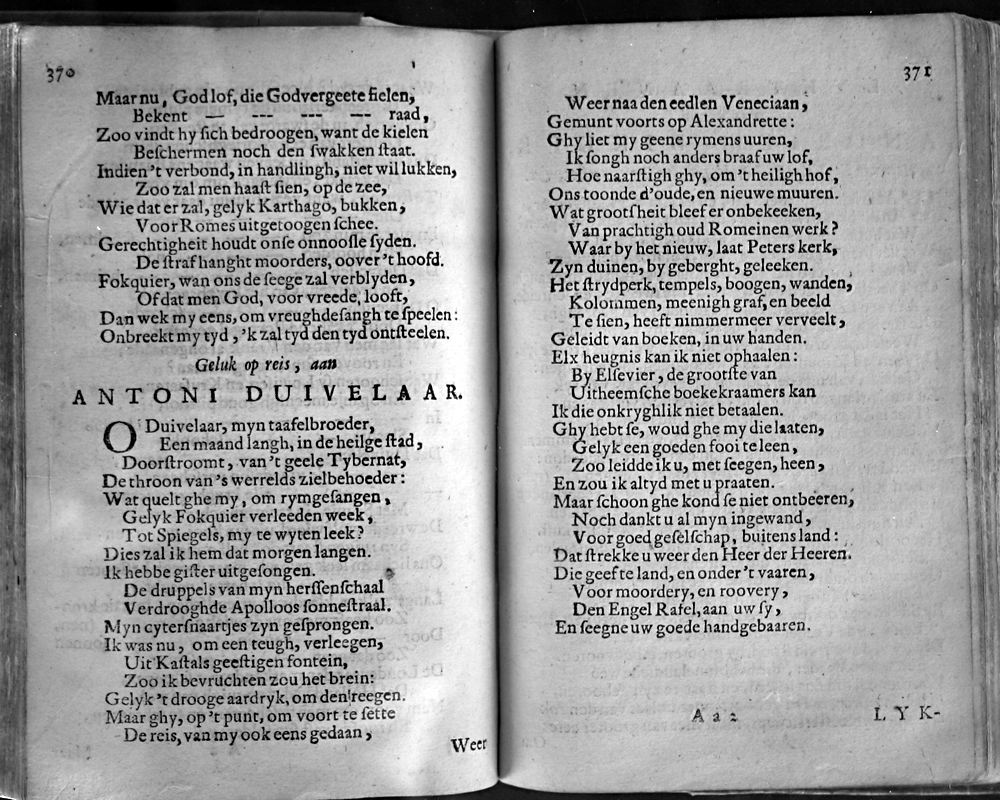 370
Maar nu, God lof, die Godvergeete fielen,
Bekent — --- --- — raad,
Zoo vindt hy ſich bedroogen, want de kielen
Beſchermen noch den ſwakken ſtaat.
Indien 't verbond, in handlingh, niet wil lukken,
Zoo zal men haaſt ſien, op de zee,
Wie dat er zal, gelyk Karthago, bukken,
Voor Romes uitgetoogen ſchee.
Gerechtigheit houdt onſe onnooſle ſyden.
De ſtraf hanght moorders, oover 't hoofd.
Fokquier, wan ons de ſeege zal verblyden,
Of dat men God, voor vreede, looft,
Dan wek my eens, om vreughdeſangh te ſpeelen:
Onbreekt my tyd, 'k zal tyd den tyd ontſteelen.
Geluk op reis, aan
ANTONI DUIVELAAR.
O Duivelaar, myn taafelbroeder,
Een maand langh, in de heilge ſtad,
Doorſtroomt, van 't geele Tybernat,
De throon van 's werrelds zielbehoeder:
Wat quelt ghe my, om rymgeſangen,
Gelyk Fokquier verleeden week,
Tot Spiegels, my te wyten leek?
Dies zal ik hem dat morgen langen.
Ik hebbe giſter uitgeſongen.
De druppels van myn herſſenſchaal
Verdrooghde Apolloos ſonneſtraal.
Myn cyterſnaartjes zyn geſprongen.
Ik was nu, om een teugh, verleegen,
Uit Kaſtals geeſtigen fontein,
Zoo ik bevruchten zou het brein:
Gelyk 't drooge aardryk, om den reegen.
Maar ghy, op 't punt, om voort te ſette
De reis, van my ook eens gedaan,
Weer
371
Weer naa den eedlen Veneciaan,
Gemunt voorts op Alexandrette:
Ghy liet my geene rymens uuren,
Ik ſongh noch anders braaf uw lof,
Hoe naarſtigh ghy, om 't heiligh hof,
Ons toonde d'oude, en nieuwe muuren.
Wat grootſheit bleef er onbekeeken,
Van prachtigh oud Romeinen werk?
Waar by het nieuw, laat Peters kerk,
Zyn duinen, by geberght, geleeken.
Het ſtrydperk, tempels, boogen, wanden,
Kolommen, meenigh graf, en beeld
Te ſien, heeft nimmermeer verveelt,
Geleidt van boeken, in uw handen.
Elx heugnis kan ik niet ophaalen:
By Elſevier, de grootſte van
Uitheemſche boekekraamers kan
Ik die onkryghlik niet betaalen.
Ghy hebt ſe, woud ghe my die laaten,
Gelyk een goeden fooi te leen,
Zoo leidde ik u, met ſeegen, heen,
En zou ik altyd met u praaten.
Maar ſchoon ghe kond ſe niet ontbeeren,
Noch dankt u al myn ingewand,
Voor goed geſelſchap, buitens land:
Dat ſtrekke u weer den Heer der Heeren.
Die geef te land, en onder 't vaaren,
Voor moordery, en roovery,
Den Engel Rafel, aan uw ſy,
En ſeegne uw goede handgebaaren.
Aa2
LYK-